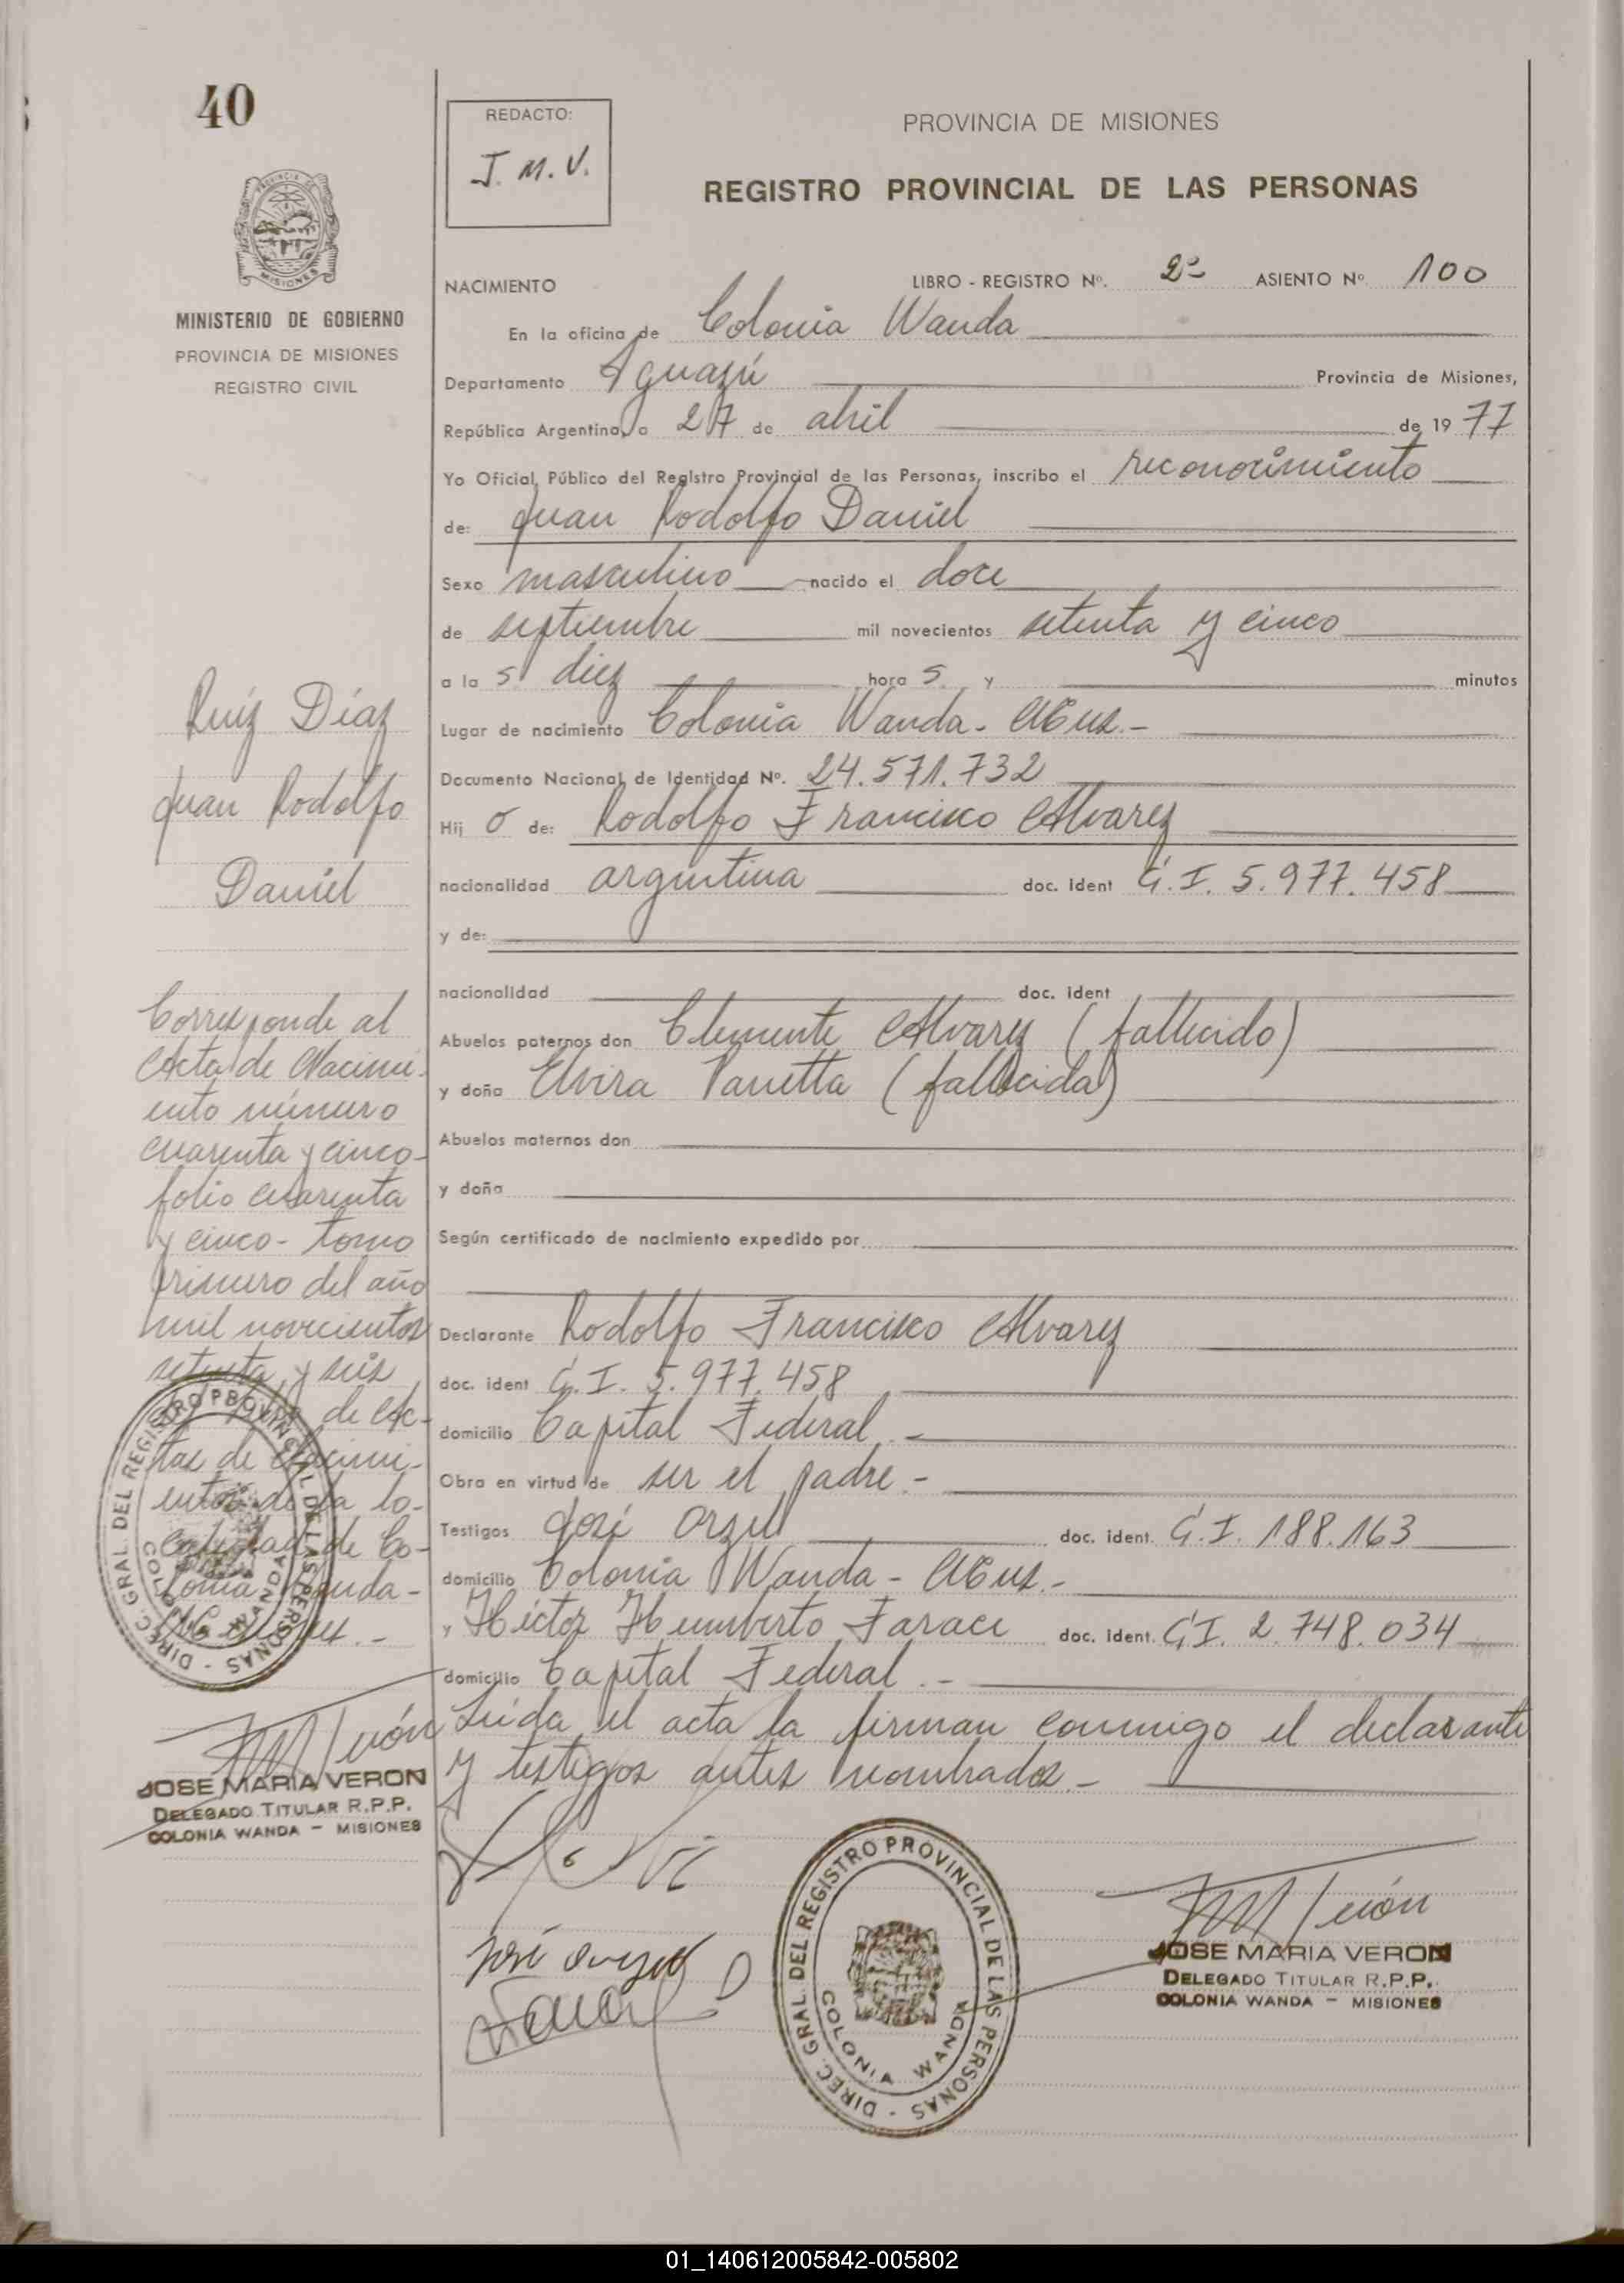 40
REDACTO:
J. M. V.
PROVINCIA DE MISIONES
REGISTRO PROVINCIAL DE LAS PERSONAS
MINISTERIO DE GOBIERNO
PROVINCIA DE MISIONES
REGISTRO CIVIL
NACIMIENTO LIBRO - REGISTRO Nº. 2º ASIENTO Nº 100
En la oficina de Colonia Wanda
Departamento Iguazú Provincia de Misiones,
República Argentina, a 27 de abril de 1977
Yo Oficial Público del Registro Provincial de las Personas, inscribo el reconocimiento
de: Juan Rodolfo Daniel
Sexo masculino nacido el doce
de septiembre mil novecientos setenta y cinco
a la s diez hora s y minutos
Lugar de nacimiento Colonia Wanda - Mnes.-
Documento Nacional de Identidad Nº. 24.571.732
Hij o de: Rodolfo Francisco Alvarez
nacionalidad argentina doc. ident C.I. 5.977.458
y de:
nacionalidad doc. ident
Abuelos paternos don Clemente Alvarez (fallecido)
y doña Elvira Panetta (fallecida)
Abuelos maternos don
y doña
Según certificado de nacimiento expedido por
Declarante Rodolfo Francisco Alvarez
doc. ident C.I. 5.977.458
domicilio Capital Federal.-
Obra en virtud de ser el padre.-
Testigos José doc. ident. C.I. 188.163
domicilio Colonia Wanda - Mnes.-
y Héctor Humberto Farace doc. ident. C.I. 2.748.034
domicilio Capital Federal.-
Leída el acta la firman conmigo el declarante
y testigos antes nombrados.-
Ruiz Díaz
Juan Rodolfo
Daniel
Corresponde al
Acta de Nacimi-
ento número
cuarenta y cinco-
folio cuarenta
y cinco- tomo
primero del año
mil novecientos
setenta y seis
de Ac-
tas de Nacimi-
entos de la lo-
calidad de Co-
lonia Wanda-
Misiones.-
DIREC. GRAL. DEL REGISTRO PROVINCIAL DE LAS PERSONAS -
COLONIA WANDA
JOSE MARIA VERON
DELEGADO TITULAR R.P.P.
COLONIA WANDA - MISIONES
DIREC. GRAL. DEL REGISTRO PROVINCIAL DE LAS PERSONAS -
COLONIA WANDA
JOSE MARIA VERON
DELEGADO TITULAR R.P.P.
COLONIA WANDA - MISIONES
01_140612005842-005802